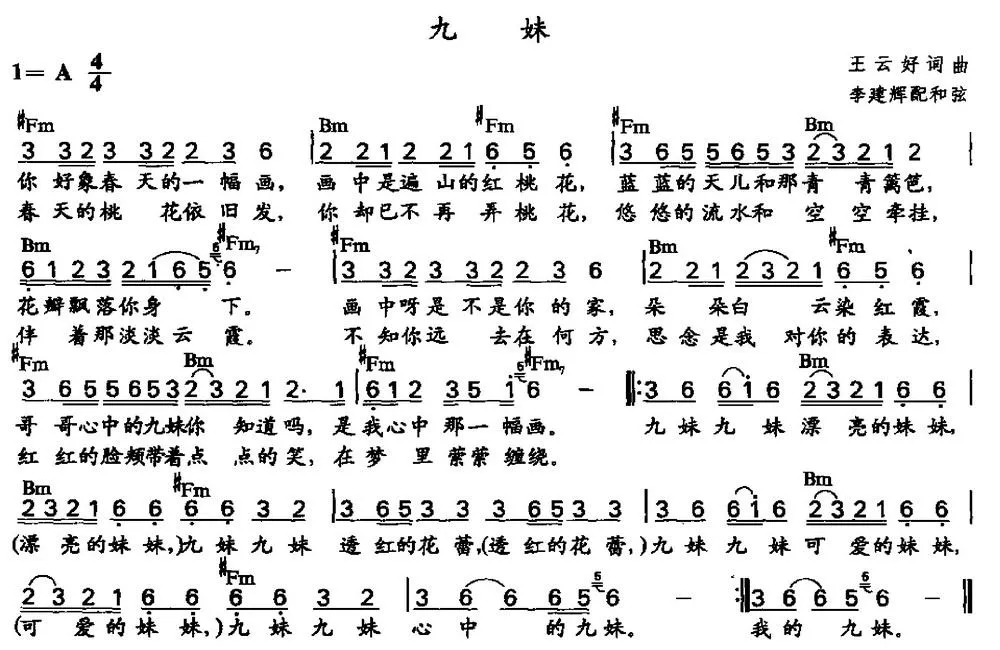 九 妹
1= A 4/4
王云好词曲
李建辉配和弦
#Fm Bm #Fm #Fm Bm
3 3 2 3 3 2 2 3 6 | 2 2 1 2 2 1 6 5 6 | 3 6 5 5 6 5 3 2 3 2 1 2 |
你 好象春 天的一 幅画， 画 中是遍 山的红 桃花， 蓝 蓝的天儿和那青 青篱笆，
春 天的桃 花依旧发， 你 却已不 再 弄桃花， 悠 悠的流水和 空 空牵挂，
Bm #Fm7 #Fm Bm #Fm
6 1 2 3 2 1 6 5 5 6 － | 3 3 2 3 3 2 2 3 6 | 2 2 1 2 3 2 1 6 5 6 |
花瓣飘落你身 下。 画 中呀是 不是你 的家， 朵 朵白 云染红霞，
伴 着那淡淡云 霞。 不 知你远 去在何方， 思 念是我 对你的 表达，
#Fm Bm #Fm #Fm7 Bm
3 6 5 5 6 5 3 2 3 2 1 2· 1 | 6 1 2 3 5 1 5 6 － ‖: 3 6 6 1 6 2 3 2 1 6 6 |
哥 哥心中的九妹你 知道吗， 是 我心中 那一幅画。 九妹九 妹漂 亮的妹妹，
红 红的脸颊带着点 点的笑， 在 梦 里 萦萦 缠绕。
Bm #Fm Bm
2 3 2 1 6 6 6 6 3 2 | 3 6 5 3 3 6 5 3 | 3 6 6 1 6 2 3 2 1 6 6 |
(漂 亮的妹 妹，)九 妹九 妹 透 红的花 蕾，(透 红的花 蕾，)九妹 九 妹可 爱的妹妹，
#Fm
2 3 2 1 6 6 6 6 3 2 | 3 6 6 6 5 5 6 － :‖ 3 6 6 5 5 6 － ‖
(可 爱的妹 妹，)九 妹九 妹 心 中 的九妹。 我的 九妹。